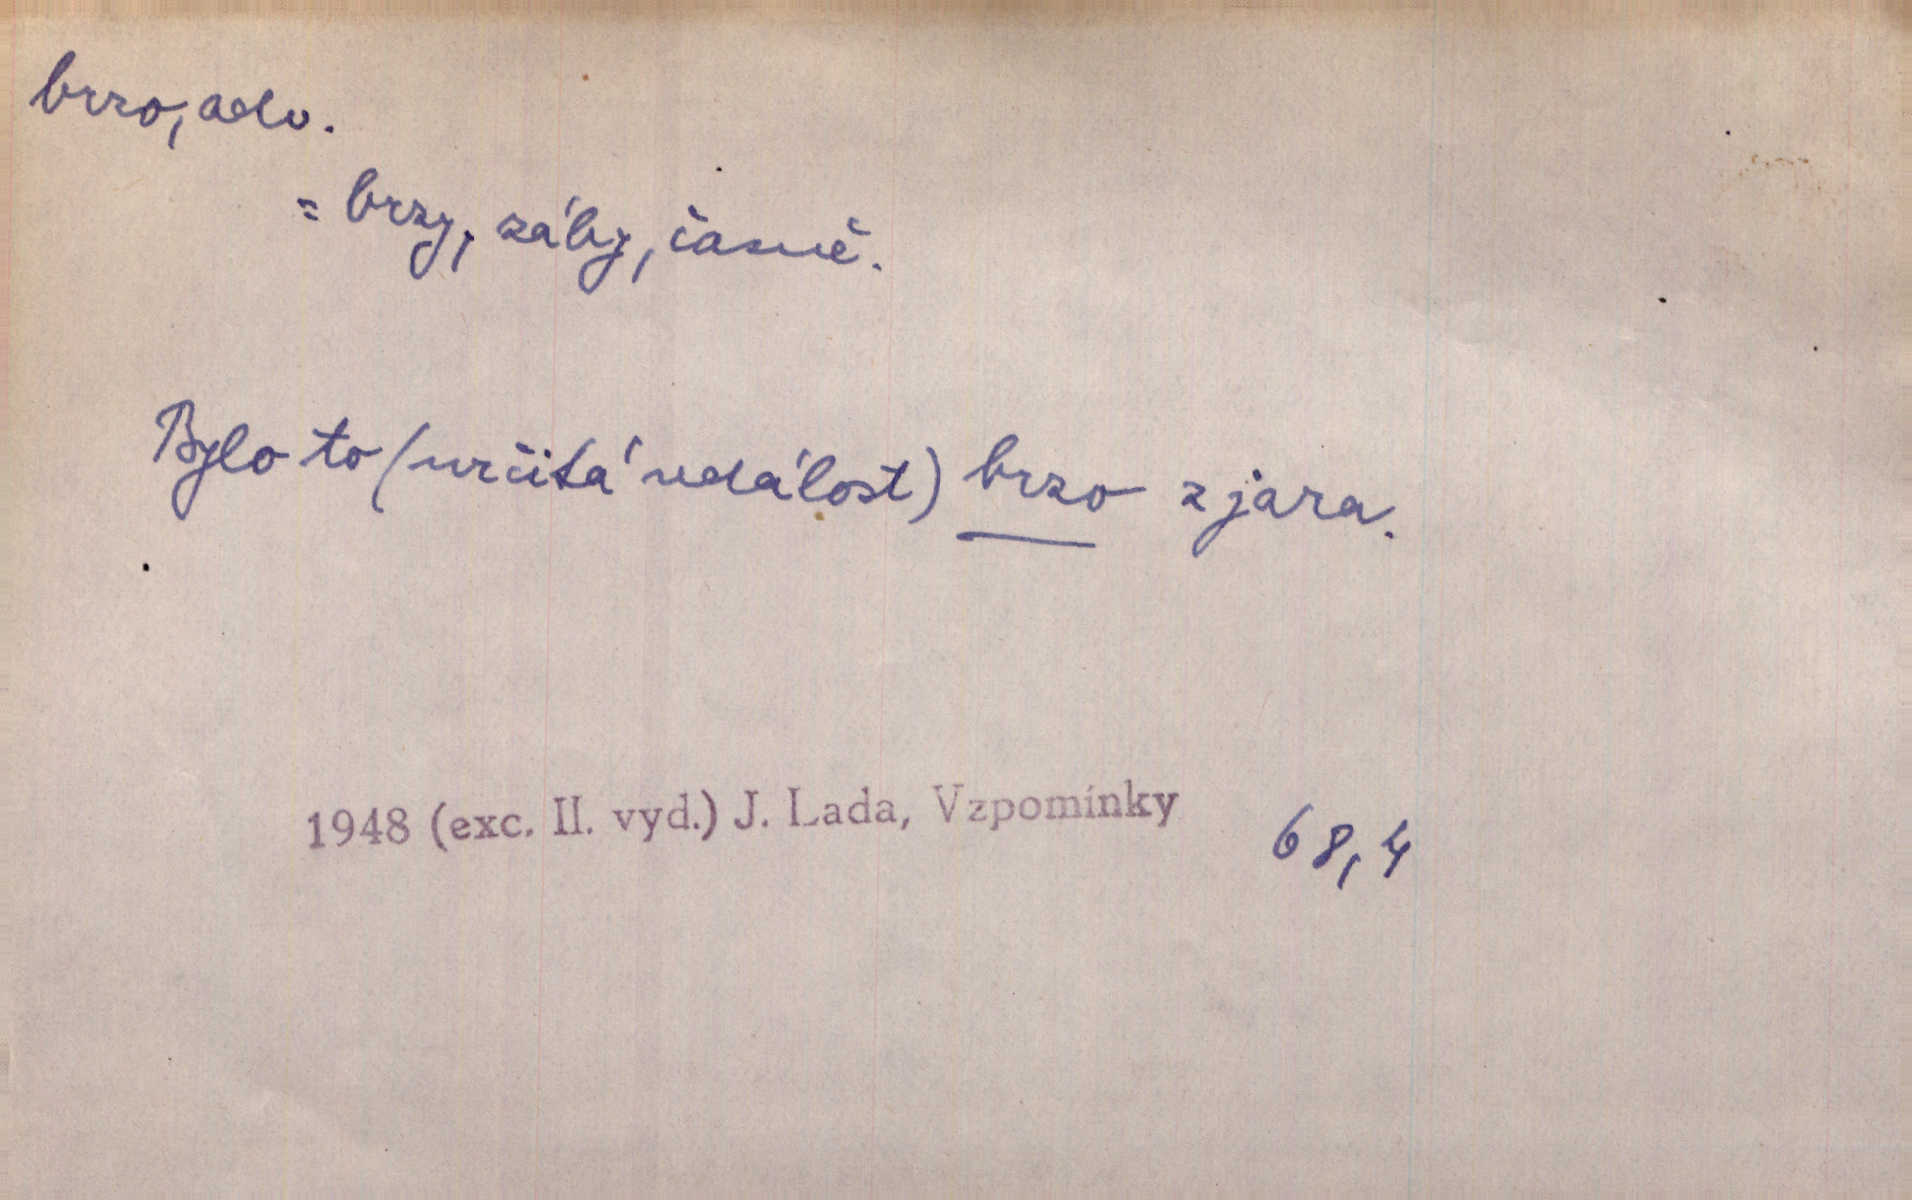 brzo, adv.
= brzy, záhy, časně.
Bylo to (určitá událost) brzo z jara.
1948 (exc. II. vyd.) J. Lada, Vzpomínky 68,4